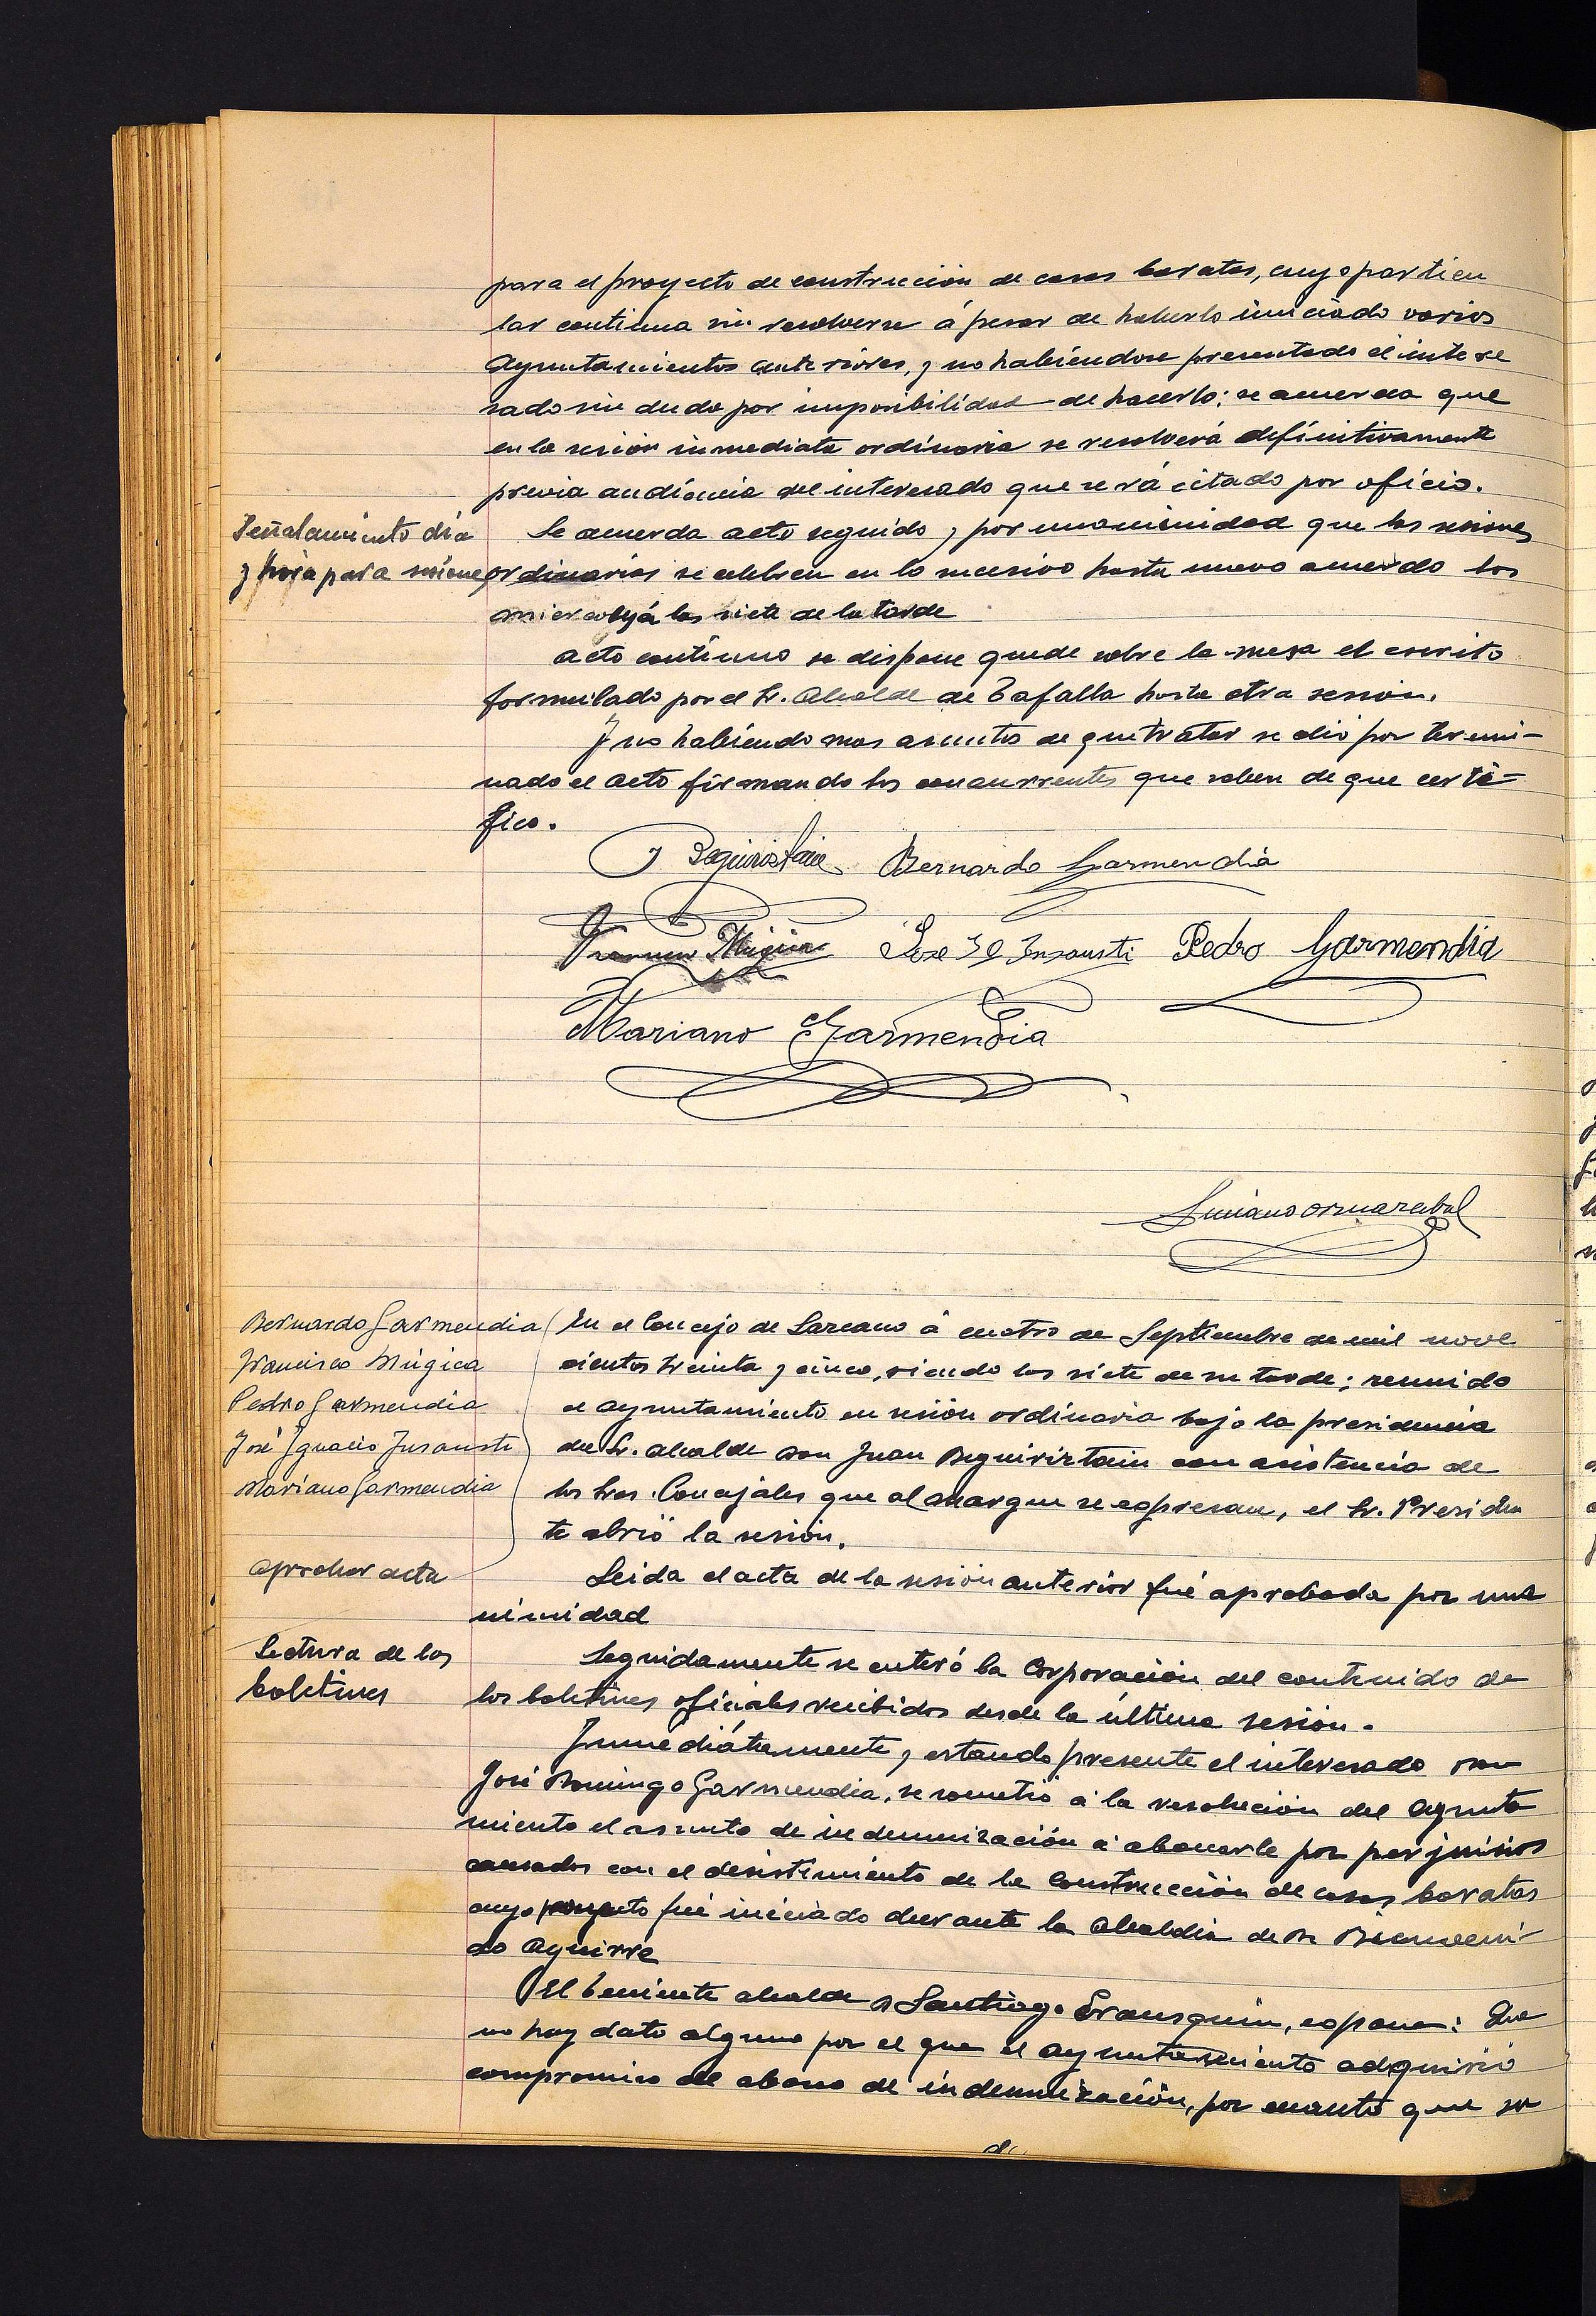 para el proyecto de construcción de casas baratas, cuyo particu
lar continua sin resolverse á pesar de haberlo iniciado varios
Ayuntamientos anteriores, y no habiéndose presentado el intere
sado sin duda por imposibilidad de hacerlo; se acuerda que
en la sesión inmediata ordinaria se resolverá definitivamente
previa audiencia del interesado que será citado por oficio.
Señalamiento dia
y hora para sesiones
Se acuerda acto seguido y por unanimidad que las sesiones
ordinarias se celebren en lo sucesivo hasta nuevo acuerdo los
miercoles á las siete de la tarde
Acto continuo se dispone quede sobre la mesa el escrito
formulado por el Sr. Alcalde de Tafalla hasta otra sesión.
Y no habiendo mas asuntos de que tratar se dió por termi-
nado el acto firmando los concurrentes que saben de que certi-
fico.
J Beguiristain Bernardo Garmendia
Francisco Múgica José Y Insausti Pedro Garmendia
Mariano Garmendia
Luciano Ormazabal
Bernardo Garmendia
Francisco Múgica
Pedro Garmendia
José Ignacio Insausti
Mariano Garmendia
En el Concejo de Lazcano á cuatro de Septiembre de mil nove
cientos treinta y cinco, siendo las siete de su tarde; reunido
el ayuntamiento en sesión ordinaria bajo la presidencia
del Sr. alcalde Don Juan Beguiriztain con asistencia de
los Sres. Concejales que al margen se expresan, el Sr. Presiden
te abrió la sesión.
Aprobar acta
Leida el acta de la sesión anterior fué aprobada por una
nimidad
Lectura de los
boletines
Seguidamente se enteró la Corporación del contenido de
los boletines oficiales recibidos desde la última sesión.
Inmediátamente y estando presente el interesado Don
José Domingo Garmendia, se sometió á la resolución del Ayunta
miento el asunto de indemnización á abonarle por perjuicios
causados con el desistimiento de la Construcción de casas baratas
cuyo proyecto fué iniciado durante la Alcaldia de Dn Bienveni-
do Aguirre
El teniente alcalde D Santiago Erausquin, expone: Que
no hay dato alguno por el que el ayuntamiento adquirió
compromiso de abono de indemnización, por cuanto que